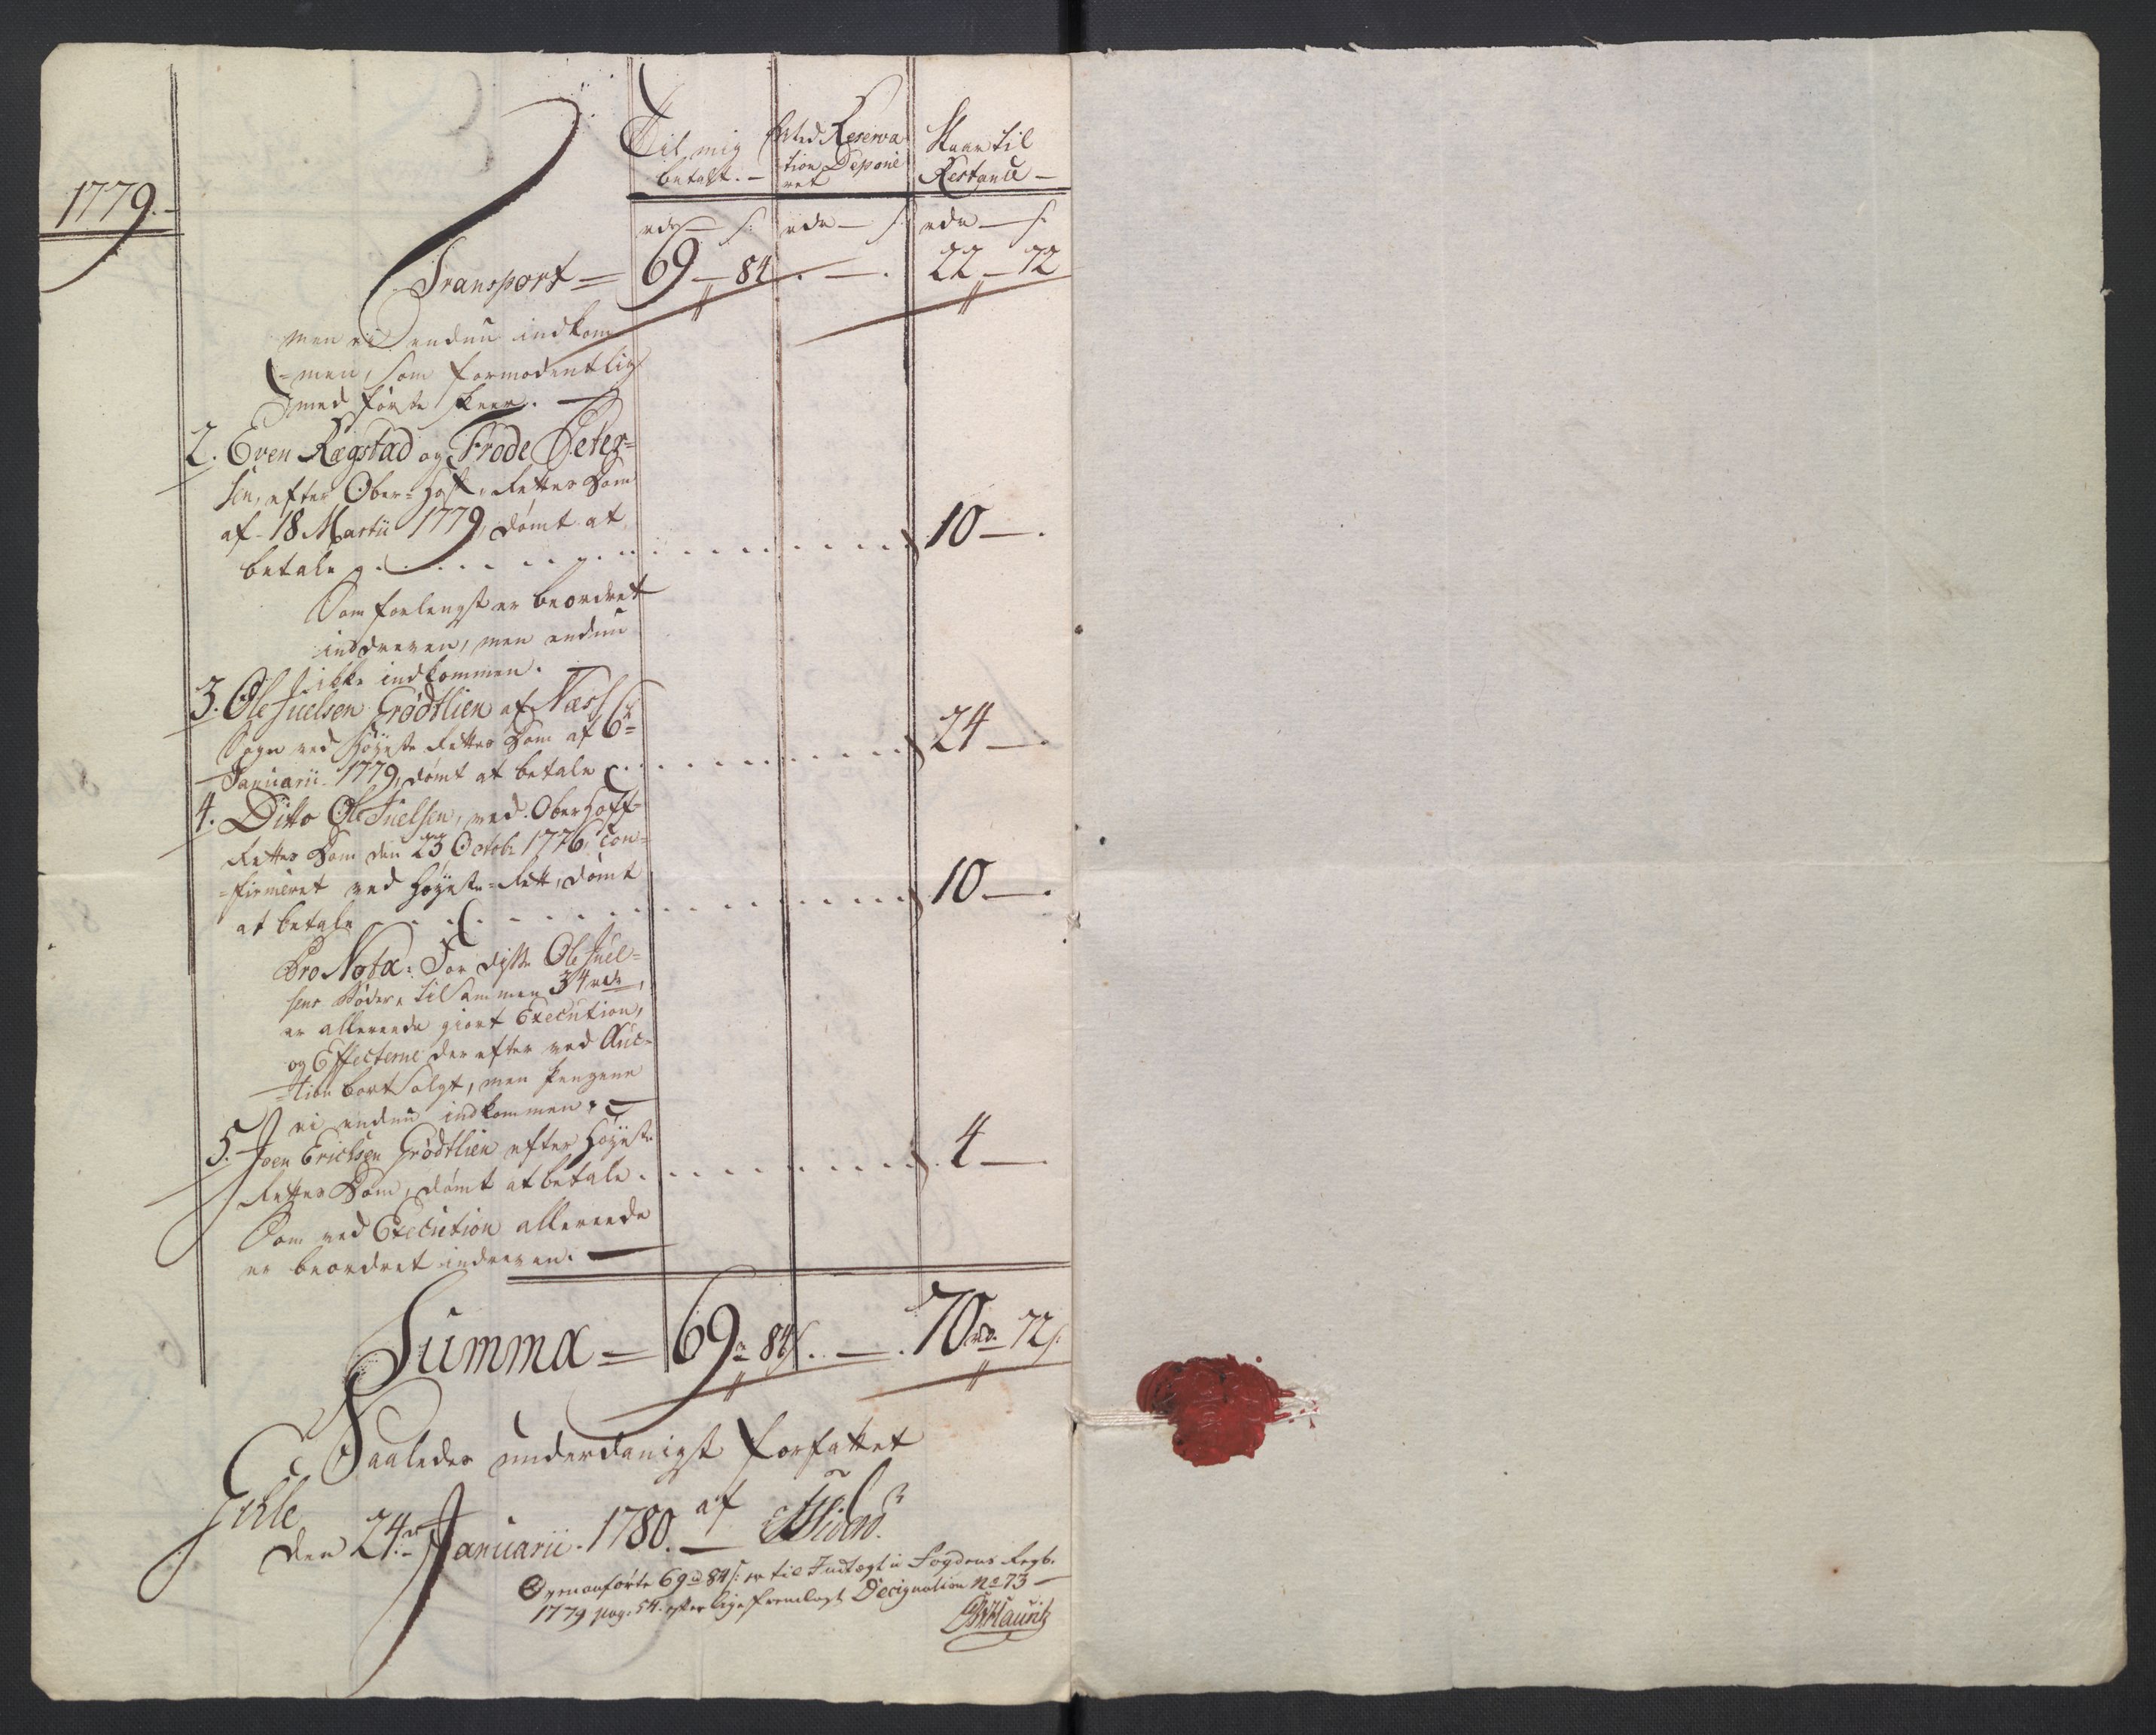 1779.
Til mig
betalt. –
Med Reserva
tion Deponé
ret
Staar til
Restance –
rdr – s: rdr – s rdr – s
Transport = 69 – 84 . – . 22 – 72
men ei endnu indkom
=men, som formodentlig
med første skeer. –
2. Even Rægstad og Frode Peter=
sen, efter Ober=Hoff=Rettes Dom
af 18 Martii 1779, dømt at
betale . . . . . . . 10 – .
Som forlengst er beordret
inddreven, men endnu
ikke indkommen.
3. Ole Juelsen Grødtlien af Næss
Sogn ved Høyeste Rettes Dom af 6te
Januarii 1779, dømt at betale . . . 24 – .
4. Ditto Ole Juelsen, ved Ober Hoff
Rettes Dom den 23 Octobr 1776, con=
=firmeret ved Høyeste=Rett, dømt
at betale . . . . . . . 10 – .
Pro Nota: For disse Ole Juel=
sens Bøder, tilsammen 34 rdr,
er allereede giort Execution,
og Effecterne derefter ved Auc=
=tion bortsolgt, men pengene
ei endnu indkommen. –
5. Joen Erichsen Grødtlien efter Høyeste
Rettes Dom, dømt at betale . . . . 4 – .
Som ved Execution allereede
er beordret inddreven. –
Summa = 69 r 84 s . – . 70 rd 72 s.
Saaledes underdanigst forfattet
Ihle
den 24de Januarii 1780. af
Ovenanførte 69 rd 84 s: er til Indtægt i Fogdens Regb.
1779 pag: 54. efter lige fremlagt Designation No 73 –